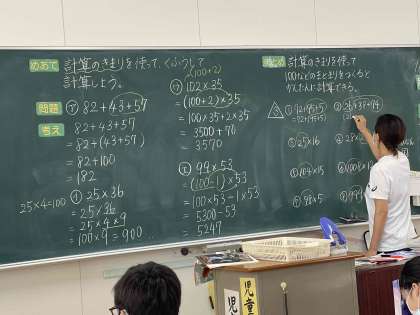 めあて 計算のきまりを使って、くふうして
計算しよう。
問題 ㋐ 82+43+57
考え 82+43+57
=82+(43+57)
=82+100
=182
25×4=100
㋑ 25×36
=25×36
=25×4×9
=100×9=900
(100+2)
㋒ 102×35
=(100+2)×35
=100×35+2×35
=3500+70
=3570
㋓ 99×53
=(100-1)×53
=100×53-1×53
=5300-53
=5247
まとめ 計算のきまりを使って
100などのまとまりをつくると
かんたんに計算できる。
①
②
③ 25×16
④ 28×
⑤ 104×15
⑦ 98×5
児童
児童